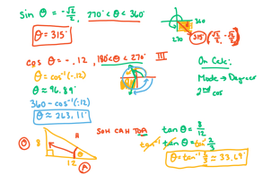 sin θ = -√2/2, 270° < θ < 360°
θ = 315°
360
270
315° (√2/2, -√2/2)
cos θ = -.12, 180° < θ < 270° III
θ = cos⁻¹(-.12)
θ ≈ 96.89°
360 - cos⁻¹(-.12)
θ ≈ 263.11°
On Calc:
Mode → Degrees
2nd cos
SOH CAH TOA
tan θ = 8/12
tan⁻¹ tan θ = tan⁻¹ 2/3
θ = tan⁻¹ 2/3 ≈ 33.69°
O
8
H
θ
12
A